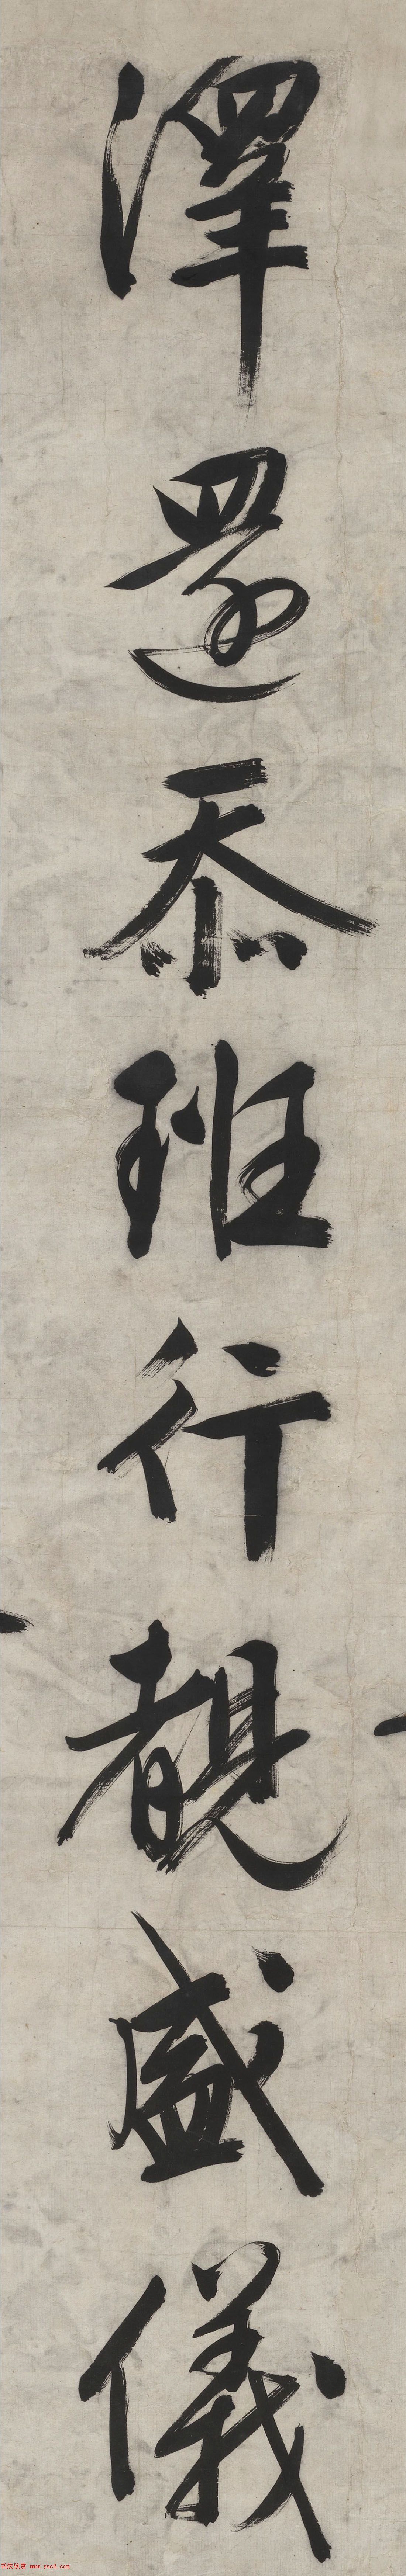 澤還忝班行覩盛儀
书法欣赏 www.yac8.com